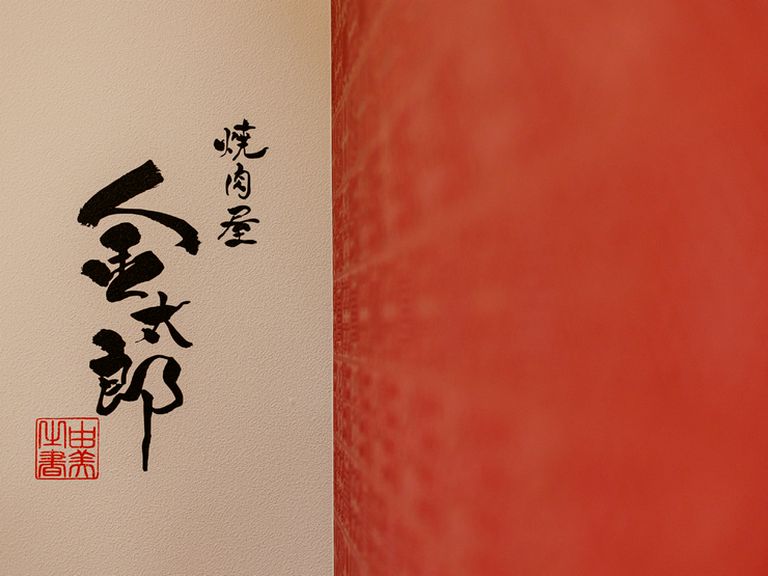 焼肉屋
金太郎
由美之書